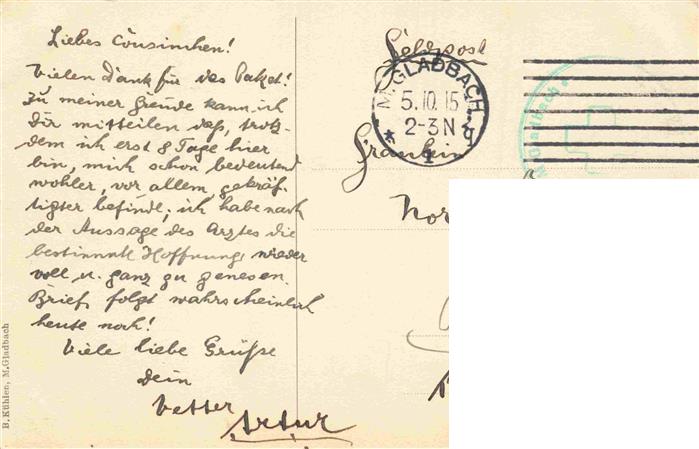 Liebes Cousinchen!
Vielen Dank für das Paket!
Zu meiner Freude kann ich
Dir mitteilen daß, trotz-
dem ich erst 8 Tage hier
bin, mich schon bedeutend
wohler, vor allem, gekräf-
tigter befinde; ich habe nach
der Aussage des Arztes die
bestimmte Hoffnung, wieder
voll u. ganz zu genesen.
Brief folgt wahrscheinlich
heute noch!
Viele liebe Grüße
Dein
Vetter
Artur
B. Kühlen, M.Gladbach
Feldpost
M.GLADBACH
5.10.15
2-3N
* 1
Fräulein
Gladbach